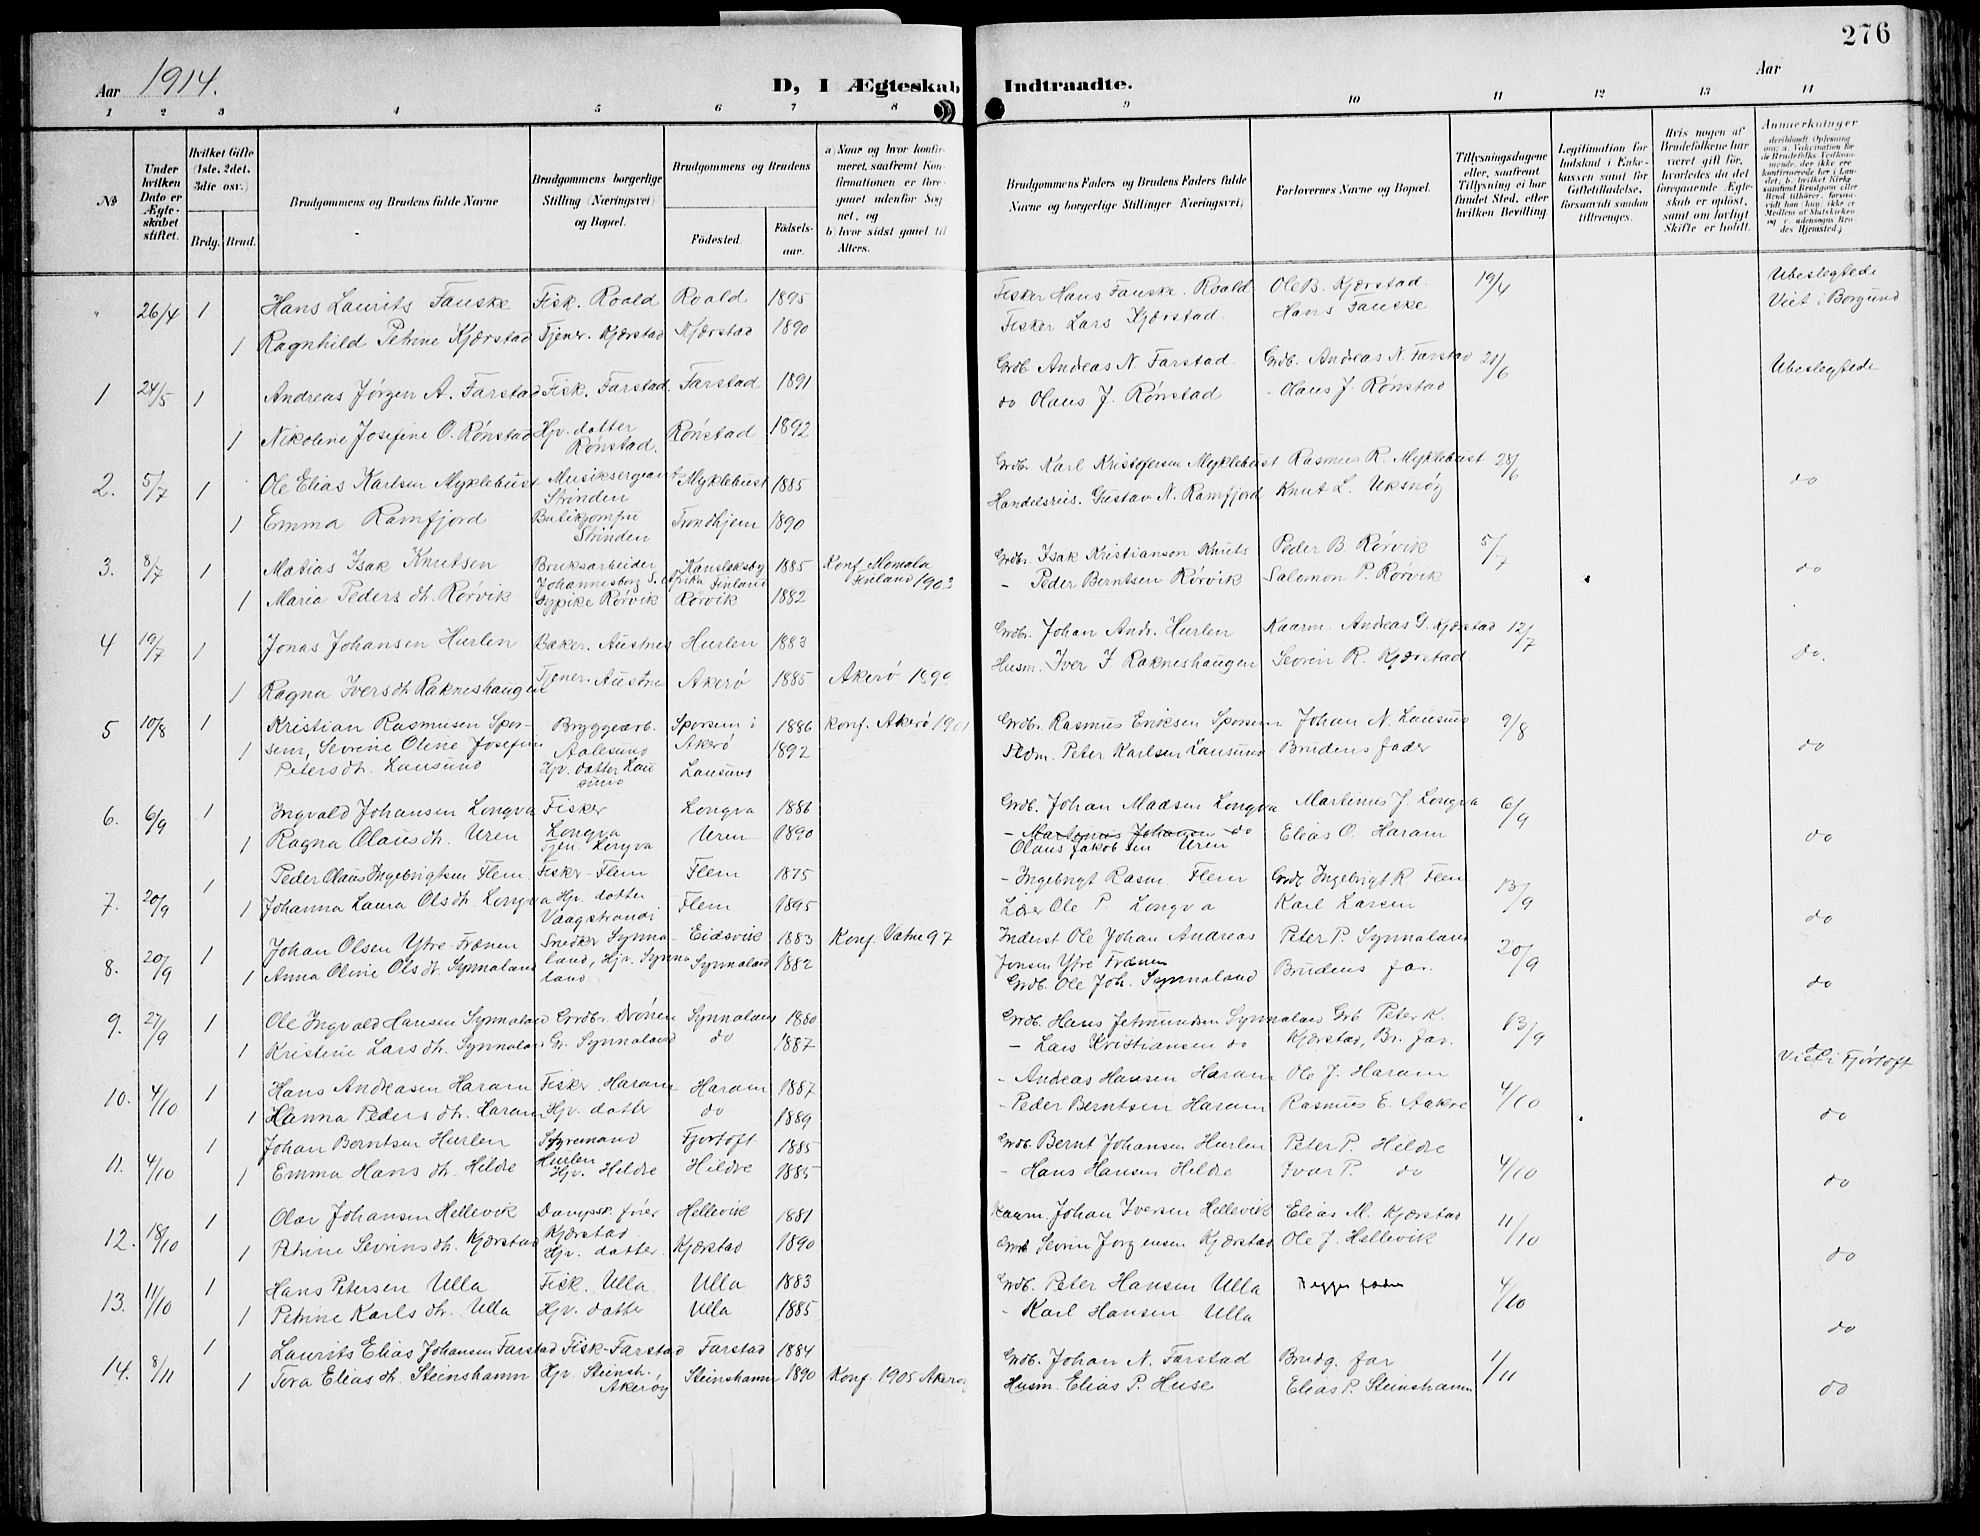 276
Aar 1914.
D, I Ægteskab Indtraadte.
Aar
1 2 3 4 5 6 7 8 9 10 11 12 13 14
№
Under hvilken Dato er Ægteskabet stiftet.
Hvilket Gifte (1ste, 2det, 3die osv.)
Brdg. Brud.
Brudgommens og Brudens fulde Navne
Brudgommens borgerlige Stilling (Næringsvei) og Bopæl.
Brudgommens og Brudens
Fødested.
Fødselsaar.
a) Naar og hvor konfirmeret, saafremt Konfirmationen er foregaaet udenfor Sognet, og
b) hvor sidst gaaet til Alters.
Brudgommens Faders og Brudens Faders fulde Navne og borgerlige Stillinger (Næringsvei)
Forlovernes Navne og Bopæl.
Tillysningsdagene eller, saafremt Tillysning ei har fundet Sted, efter hvilken Bevilling
Legitimation for Indskud i Enkekassen samt for Giftetilladelse, forsaavidt saadan tiltrænges.
Hvis nogen af Brudefolkene har været gift før, hvorledes da det foregaaende Ægteskab er opløst, samt om lovligt Skifte er holdt.
Anmærkninger
" 26/4 1 Hans Laurits Fauske Fisk. Roald Roald 1895 Fisker Hans Fauske. Roald Ole B. Kjærstad. 19/4 Ubeslegtede
1 Ragnhild Petrine Kjærstad Tjener. Kjærstad Kjærstad 1890 Fisker Lars Kjærstad. Hans Fauske Viet i Borgund
1 24/5 1 Andreas Jørgen A. Farstad Fisk. Farstad. Farstad 1891 Grdb. Andreas N. Farstad. Grdb. Andreas N. Farstad 21/6 Ubeslegtede
1 Nikoline Josefine O. Rønstad Hjv. datter Rønstad. Rønstad 1892 do Olaus J. Rønstad - Olaus J. Rønstad
2. 5/7 1 Ole Elias Karlsen Myklebust Musiksergeant Strinden Myklebust 1885 Grdb. Karl Kristofersen Myklebust Rasmus R. Myklebust 28/6 do
1 Emma Ramfjord Strinden Trondhjem 1890 Handelsreis. Gustav N. Ramfjord Knut L. Uksnøy
3. 8/7 1 Matias Isak Knutsen Bruksarbeider Johannesborg S. Afrika Finland 1885 Konf. Finland 1903 Grdb. Isak Kristianson Knuts Peder B. Rørvik 5/7 do
1 Maria Peders dt. Rørvik Sypike Rørvik Rørvik 1882 - Peder Berntsen Rørvik Salomon P. Rørvik
4 19/7 1 Jonas Johansen Hurlen Baker. Austnes Hurlen 1883 Grdb. Johan Andr. Hurlen Kaarm. Andreas G. Kjærstad 12/7 do.
1 Ragna Ivers dt. Rakneshaugen Tjener. Austnes Akerø 1885 Akerø 1899 Husm. Iver J. Rakneshaugen Sevrin R. Kjærstad
5 10/8 1 Kristian Rasmusen Spor- Bryggearb. Sporsem i 1886 Konf. Akerø 1901 Grdb. Rasmus Eriksen Sporsem Johan N. Lausund 9/8
1 sem, Sevrine Oline Josefine Aalesund Akerø 1892 Peter Karlsen Lausund Brudens fader do
Peters dt. Lausund Hjv. datter Lausund Lausund
6. 6/9 1 Ingvald Johansen Longva Fisker Longva Longva 1886 Grdb. Johan Madsen Longva Martinus J. Longva 6/9
1 Ragna Olaus dt. Uren Tjen. Longva Uren 1890 - Martinus Johansen do Elias O. Haram do
Olaus Jakobsen Uren
1 Peder Olaus Ingebrigtsen Flem Fisker - Flem Flem 1875 - Ingebrigt Rasm. Flem Grdb. Ingebrigt R. Flem
7. 20/9 1 Johanna Laura Ols dt. Longva Hjv. datter Vaagstranda Flem 1895 Lærer Ole P. Longva Karl Larsen 13/9 do
8. 20/9 1 Johan Olsen Ytre-Frænen Snedker Synna- Eidsvik 1883 Konf. Vatne 97 Inderst Ole Johan Andreas Peter P. Synnaland 20/9
1 Anna Oline Ols dt. Synnaland land, Hjv. Synnaland Synnaland 1882 Jonsen Ytre Frænen Brudens far. do
Grdb. Ole Joh. Synnaland
9. 27/9 1 Ole Ingvald Hansen Synnaland Grdbr. Drønen Synnaland 1880 Grdb. Hans Jetmundsen Synnaland Grb Peter K. 13/9
1 Kristine Lars dt. Synnaland Gr. Synnaland do 1887 - Lars Kristiansen do Kjærstad, Br. far. Viet i Fjørtoft
10. 4/10 1 Hans Andreasen Haram Fisker. Haram Haram 1887 - Andreas Hansen Haram Ole J. Haram 4/10
1 Hanna Peders dt. Haram Hjv. datter do 1889 - Peder Berntsen Haram Rasmus E. Aakre do
11. 4/10 1 Johan Berntsen Hurlen Styrmand Hurlen Fjørtoft 1885 Grdb. Bernt Johansen Hurlen Peter P. Hildre 4/10
1 Emma Hans dt. Hildre Hjv. Hildre Hildre 1885 - Hans Hansen Hildre Ivar P. do do
12. 18/10 1 Olav Johansen Hellevik Dampsk. fører Kjærstad Hellevik 1881 Kaarm. Johan Iversen Hellevik Elias M. Kjærstad 11/10
1 Petrine Sevrins dt. Kjærstad Hjv. datter. Kjærstad 1890 Grdb Sevrin Jørgensen Kjærstad Ole J. Hellevik do
13. 11/10 1 Hans Petersen Ulla Fisk. Ulla Ulla 1883 Grdb. Peter Hansen Ulla Begges fædre 4/10
1 Petrine Karls dt. Ulla Hjv. datter Ulla 1885 - Karl Hansen Ulla do
14. 8/11 1 Laurits Elias Johansen Farstad Fisk - Farstad Farstad 1884 Grdb. Johan N. Farstad Brudg. far 1/11
1 Tora Elias dt. Steinshamn Hjv. Steinsh. Akerøy Steinshamn 1890 Konf. 1905 Akerøy Husm. Elias P. Huse Elias P. Steinshamn do